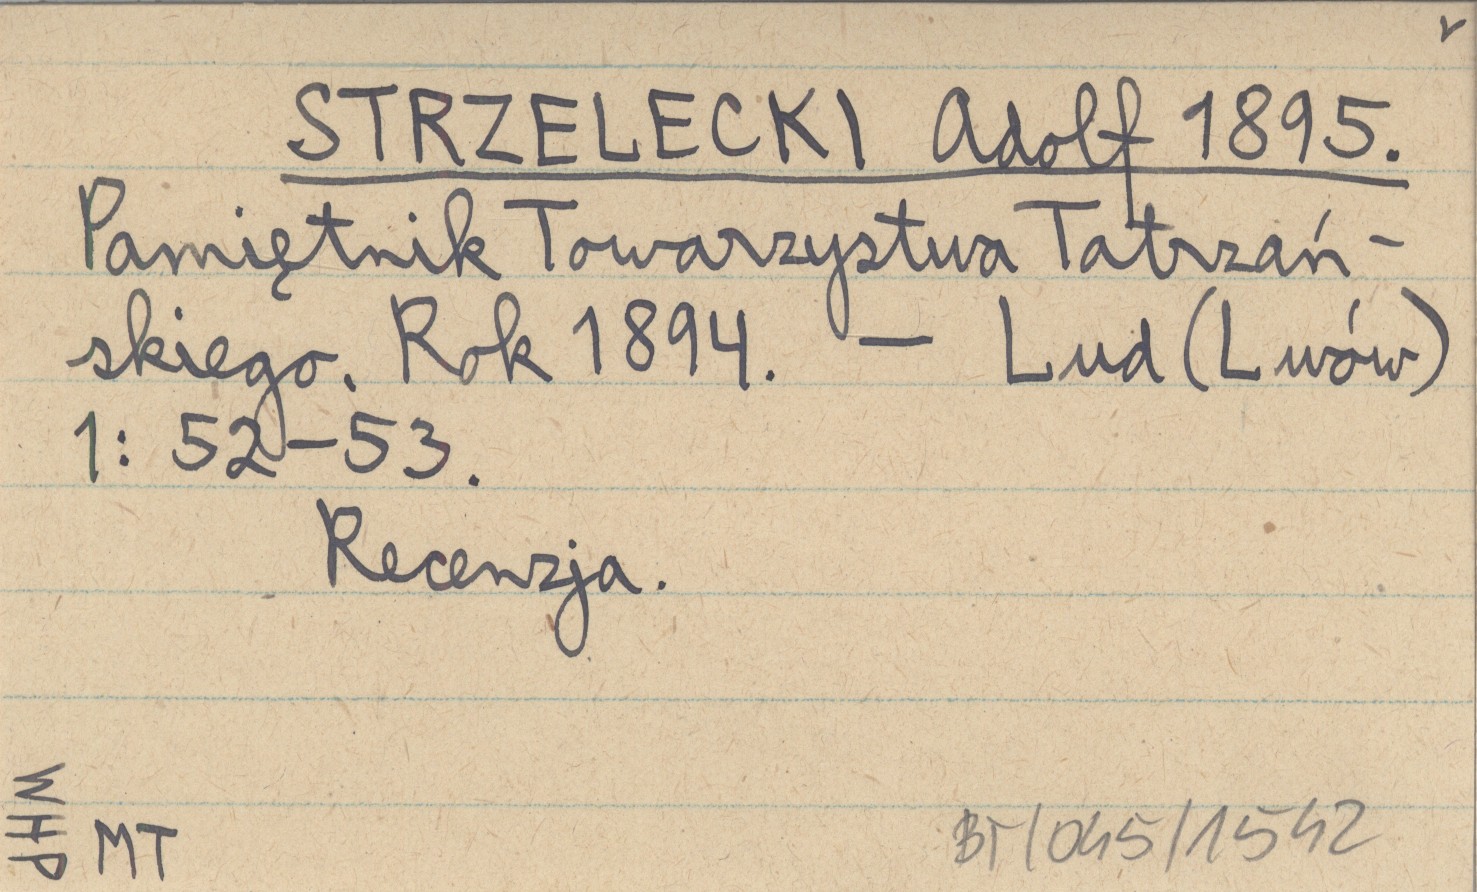 STRZELECKI Adolf 1895.
Pamiętnik Towarzystwa Tatrzań-
skiego. Rok 1894. — Lud (Lwów)
1: 52-53.
Recenzja.
WHP
MT
BT/045/1542